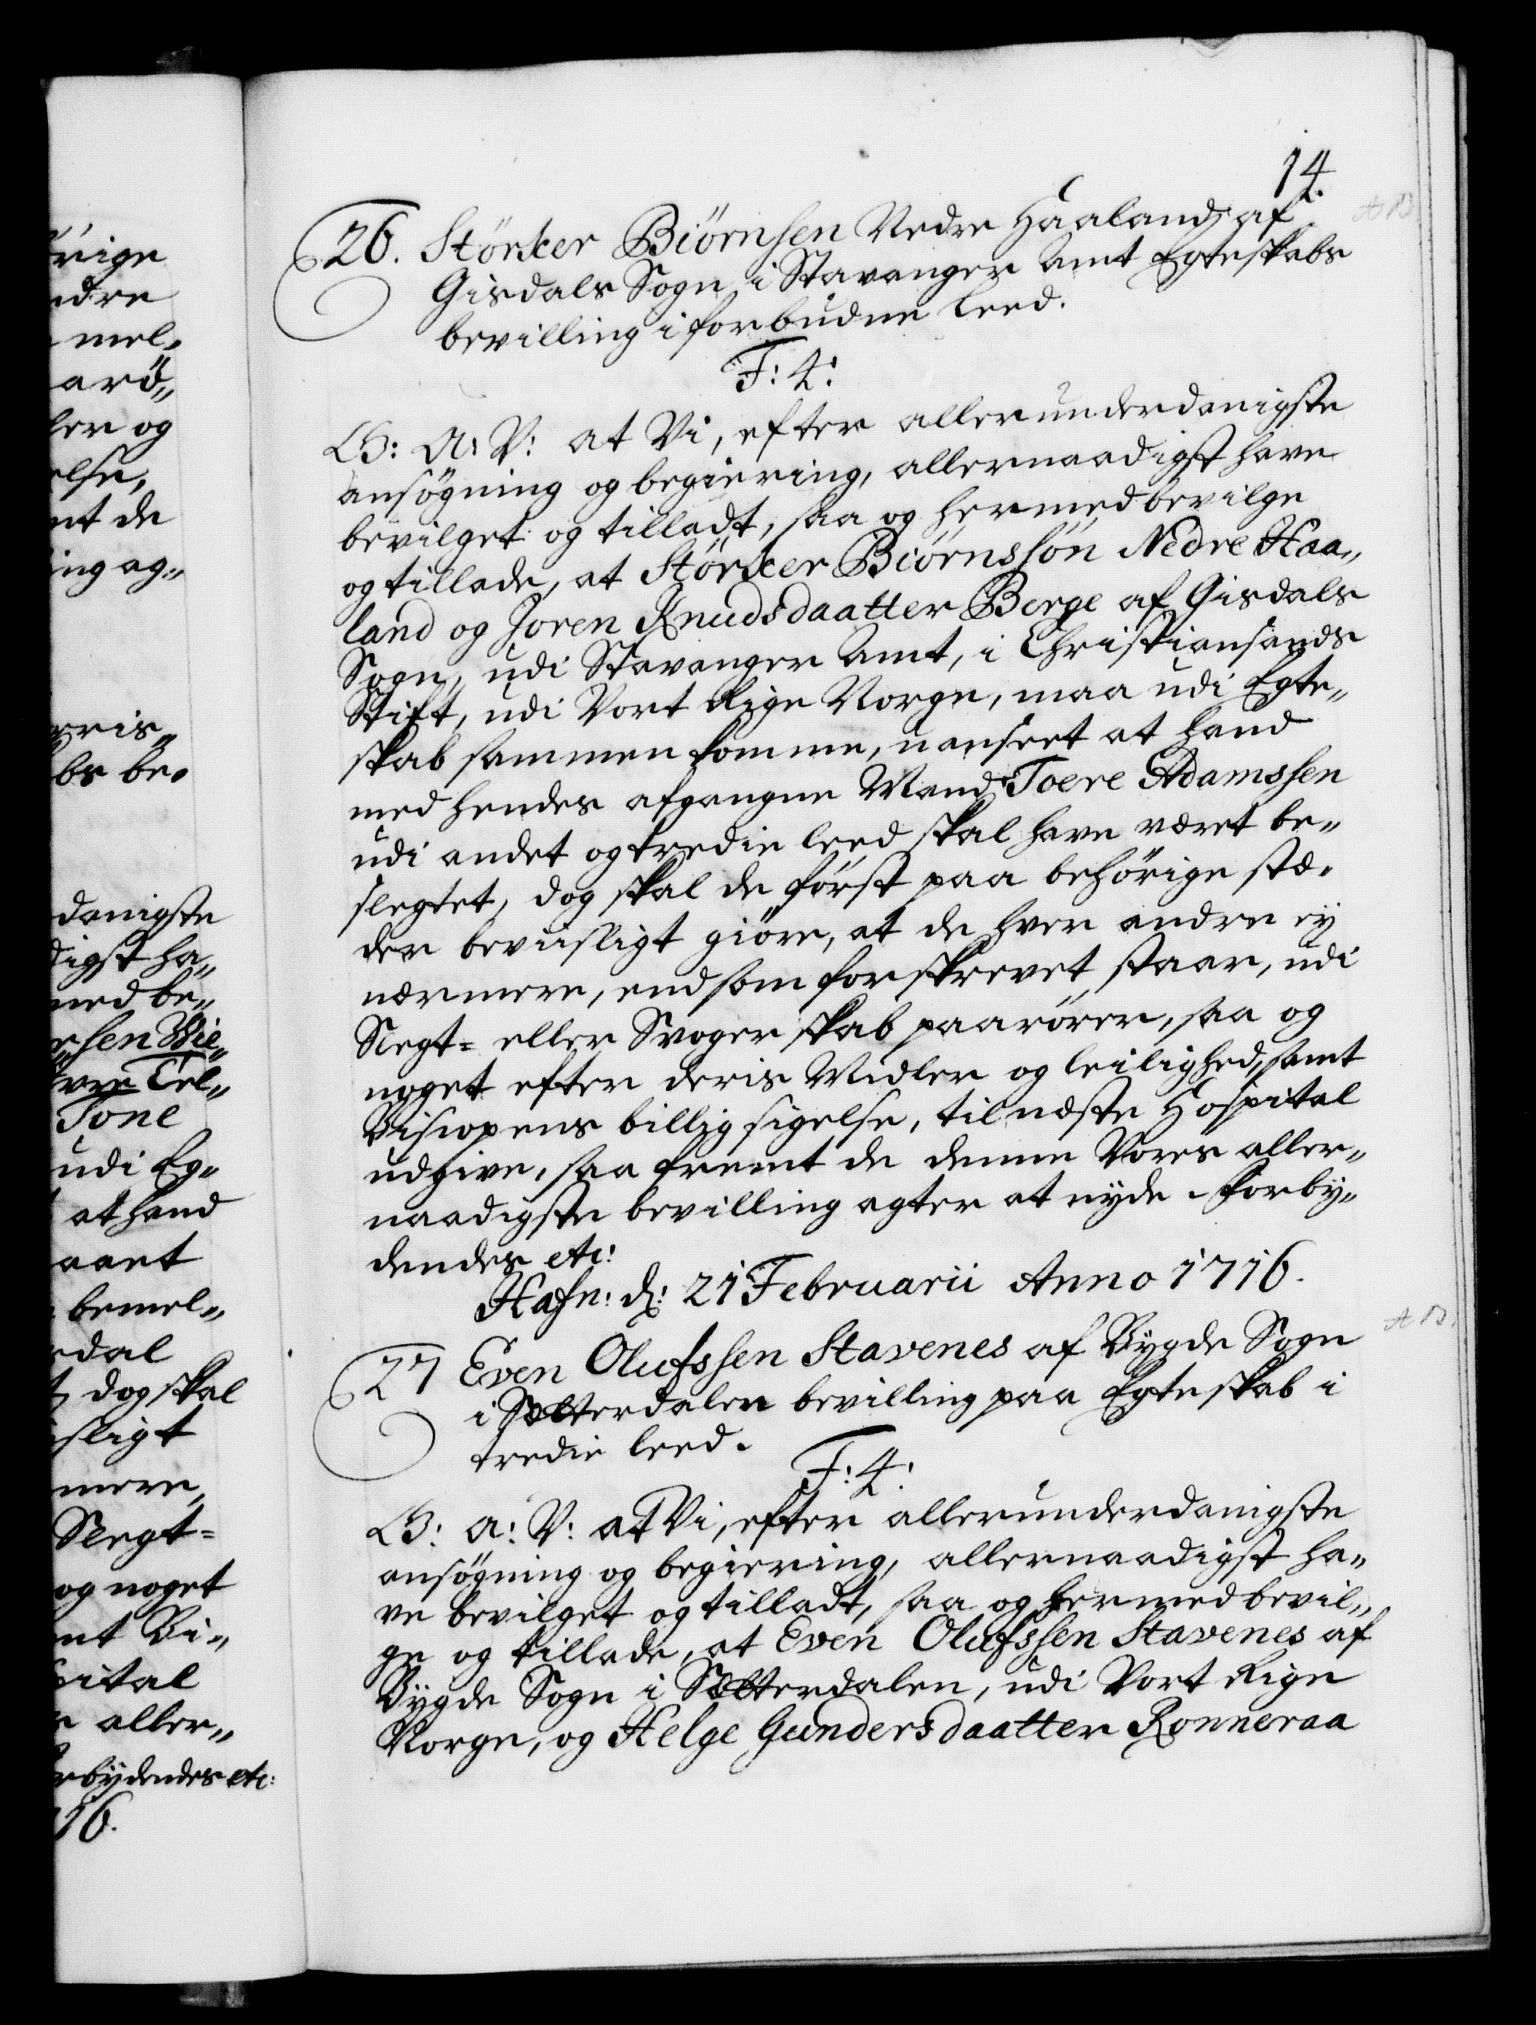 14.
26. Störker Biörnsen Nedre Haaland af
Gisdals Sogn i Stavanger Amt Egteskabs
bevilling i forbudne Leed.
F: 4:
G: A: V: at Vi, efter allerunderdanigste
ansögning og begiering, allernaadigst have
bevilget og tilladt, saa og hermed bevilge
og tillade, at Störker Biörnssön Nedre Haa„
land og Joren Knudsdaatter Berge af Gisdals
Sogn, udi Stavanger Amt, i Christiansands
Stift, udi Vort Rige Norge, maa udi Egte„
skab sammen komme, uanseet at hand
med hendes afgangne Mand Toere Adamssen
udi andet og tredie leed skal have været be„
slegtet, dog skal de först paa behörige stæ„
der beviisligt giöre, at de hver andre ey
nærmere, end som forskrevet staar, udi
Slegt= eller Svogerskab paarörer, saa og
noget efter deris Midler og leilighed, samt
Biscopens billig sigelse, til næste Hospital
udgive, saa fremt de denne Vores aller„
naadigste bevilling agter at nyde. Forby„
dendes etc:
Hafn: d: 21 Februarii Anno 1716.
27 Even Olufssen Stavenes af Bygde Sogn
i Sætterdalen bevilling paa Egteskab i
tredie leed.
F: 4:
G: A: V: at Vi, efter allerunderdanigste
ansögning og begiering, allernaadigst ha„
ve bevilget og tilladt, saa og hermed bevil„
ge og tillade, at Even Olufssen Stavenes af
Bygde Sogn i Sætterdalen, udi Vort Rige
Norge, og Helge Gundersdaatter Ronneraa